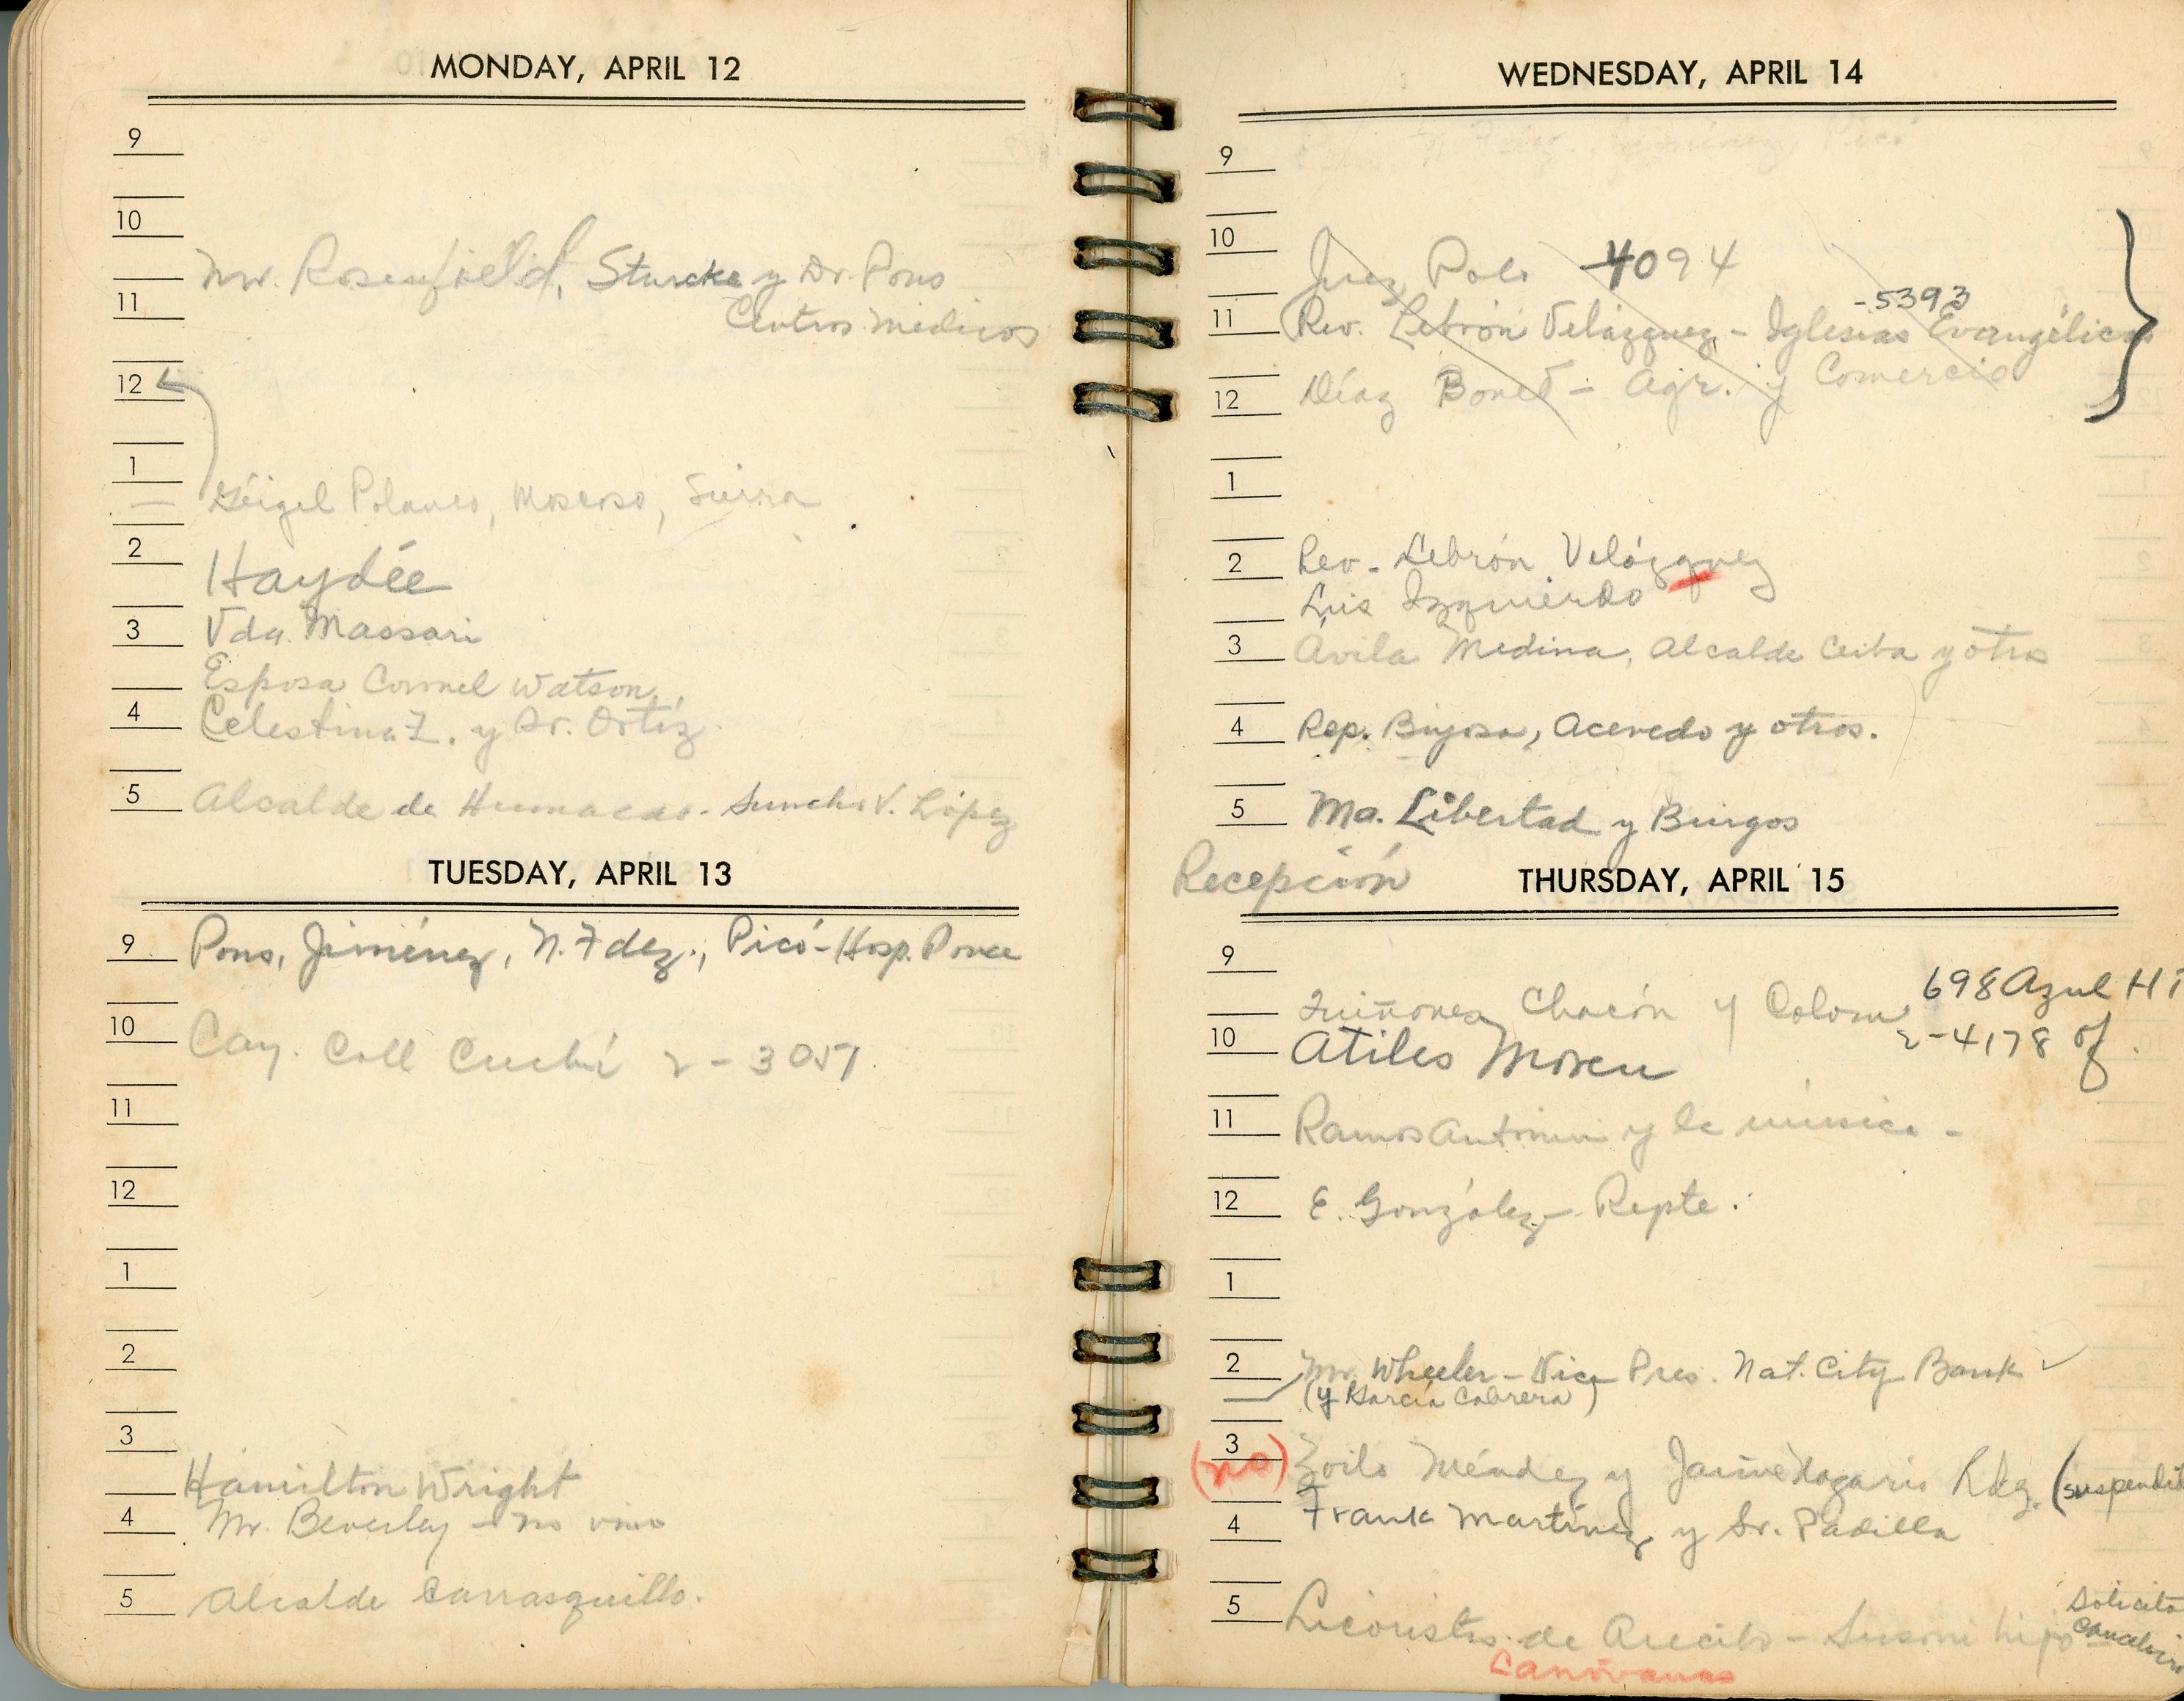 MONDAY, APRIL 12
9
10
Mr. Rosenfield, Sturcke y Dr. Pons
11
Centros Médicos
12
1
Géigel Polanco, Moscoso, Sierra
2
Haydée
3 Vda. Massari
Esposa Cornel Watson
4 Celestina Z. y Sr. Ortíz
5 Alcalde de Humacao - Suncho V. López
TUESDAY, APRIL 13
9 Pons, Jiménez, N. Fdez., Picó - Hosp. Ponce
10 Cay. Coll Cuchí 2-3051
11
12
1
2
3
Hamilton Wright
4 Mr. Beverley - no vino
5 Alcalde Carrasquillo.
WEDNESDAY, APRIL 14
9
10
Juez Polo 4094
-5393
11 Rev. Lebrón Velázquez - Iglesias Evangélicas
12 Díaz Bonet - Agr. y Comercio
1
2 Rev. Lebrón Velázquez
Luis Izquierdo
3 Avila Medina, Alcalde Ceiba y otros
4 Rep. , Acevedo y otros.
5 Ma. Libertad y Burgos
Recepción
THURSDAY, APRIL 15
9
698 Azul
Quiñones, Chacón y Colom
2-4178 of.
10 Atiles Moreu
11 Ramos Antonini y la música -
12 E. González - Repte.
1
2 Mr. Wheeler - Vice Pres. Nat. City Bank
(y García Cabrera)
3 (no) Zoilo Méndez y Jaime Rdz.
4 Frank Martínez y Sr. Padilla
5 Licoristas de Arecibo - Susoni hijo
Canóvanas